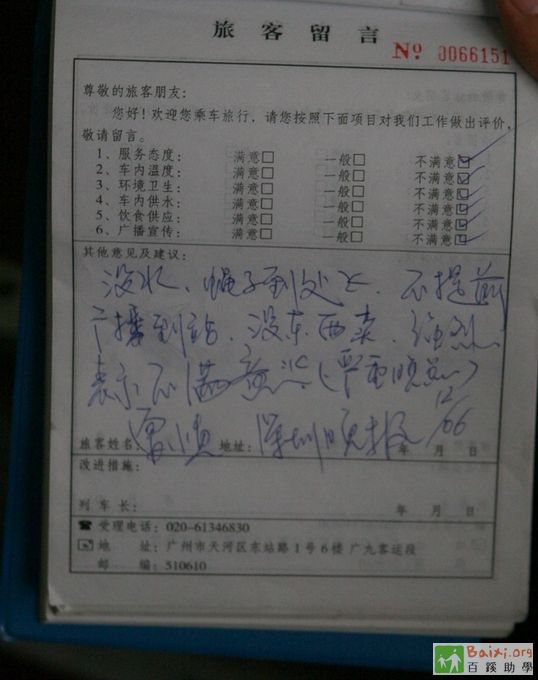 旅客留言
No 0066151
尊敬的旅客朋友:
您好!欢迎您乘车旅行,请您按照下面项目对我们工作做出评价,
敬请留言。
1、服务态度: 满意□ 一般□ 不满意☑
2、车内温度: 满意□ 一般□ 不满意☑
3、环境卫生: 满意□ 一般□ 不满意☑
4、车内供水: 满意□ 一般□ 不满意☑
5、饮食供应: 满意□ 一般□ 不满意☑
6、广播宣传: 满意□ 一般□ 不满意☑
其他意见及建议:
没水、蝇子到处飞、不提前
广播到站、没东西卖、强烈
表示不满意(严重晚点)
旅客姓名: 地址: 深圳晚报 年 月 日
改进措施:
列车长: 年 月 日
☎受理电话:020-61346830
地 址:广州市天河区东站路1号6楼 广九客运段
邮 编:510610
Baixi.org
百蹊助學